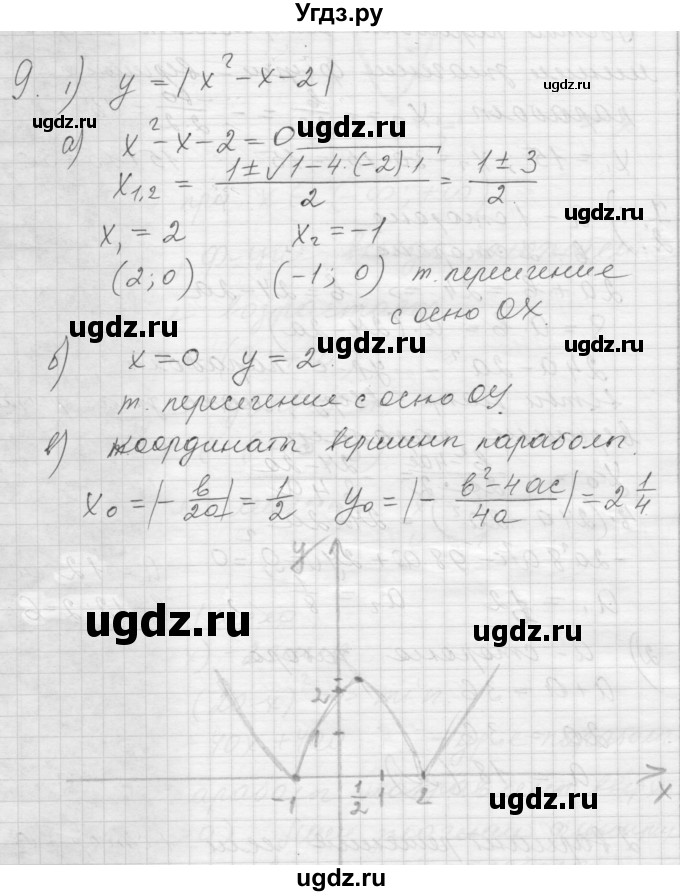 Угдз.ру
9. 1) y = |x² - x - 2|
ugdz.ru ugdz.ru
а) x² - x - 2 = 0
x₁,₂ = (1 ± √(1 - 4·(-2)·1))/2 = (1 ± 3)/2
ugdz.ru
x₁ = 2 x₂ = -1
(2; 0) (-1; 0) т. пересечение
с осью OX.
ugdz.ru ugdz.ru
б) x = 0 y = 2
т. пересечение с осью OY
в) координаты вершины параболы.
x₀ = |-b/2a| = 1/2 y₀ = |-(b² - 4ac)/4a| = 2 1/4
y
ugdz.ru
ugdz.ru
2
1
-1 1/2 1 2 x
ugdz.ru
ugdz.ru